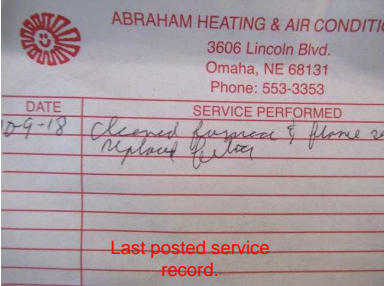 ABRAHAM HEATING & AIR CONDITIO
3606 Lincoln Blvd.
Omaha, NE 68131
Phone: 553-3353
DATE SERVICE PERFORMED
0-9-18 Cleaned furnace & flame se
replaced filter
Last posted service
record.